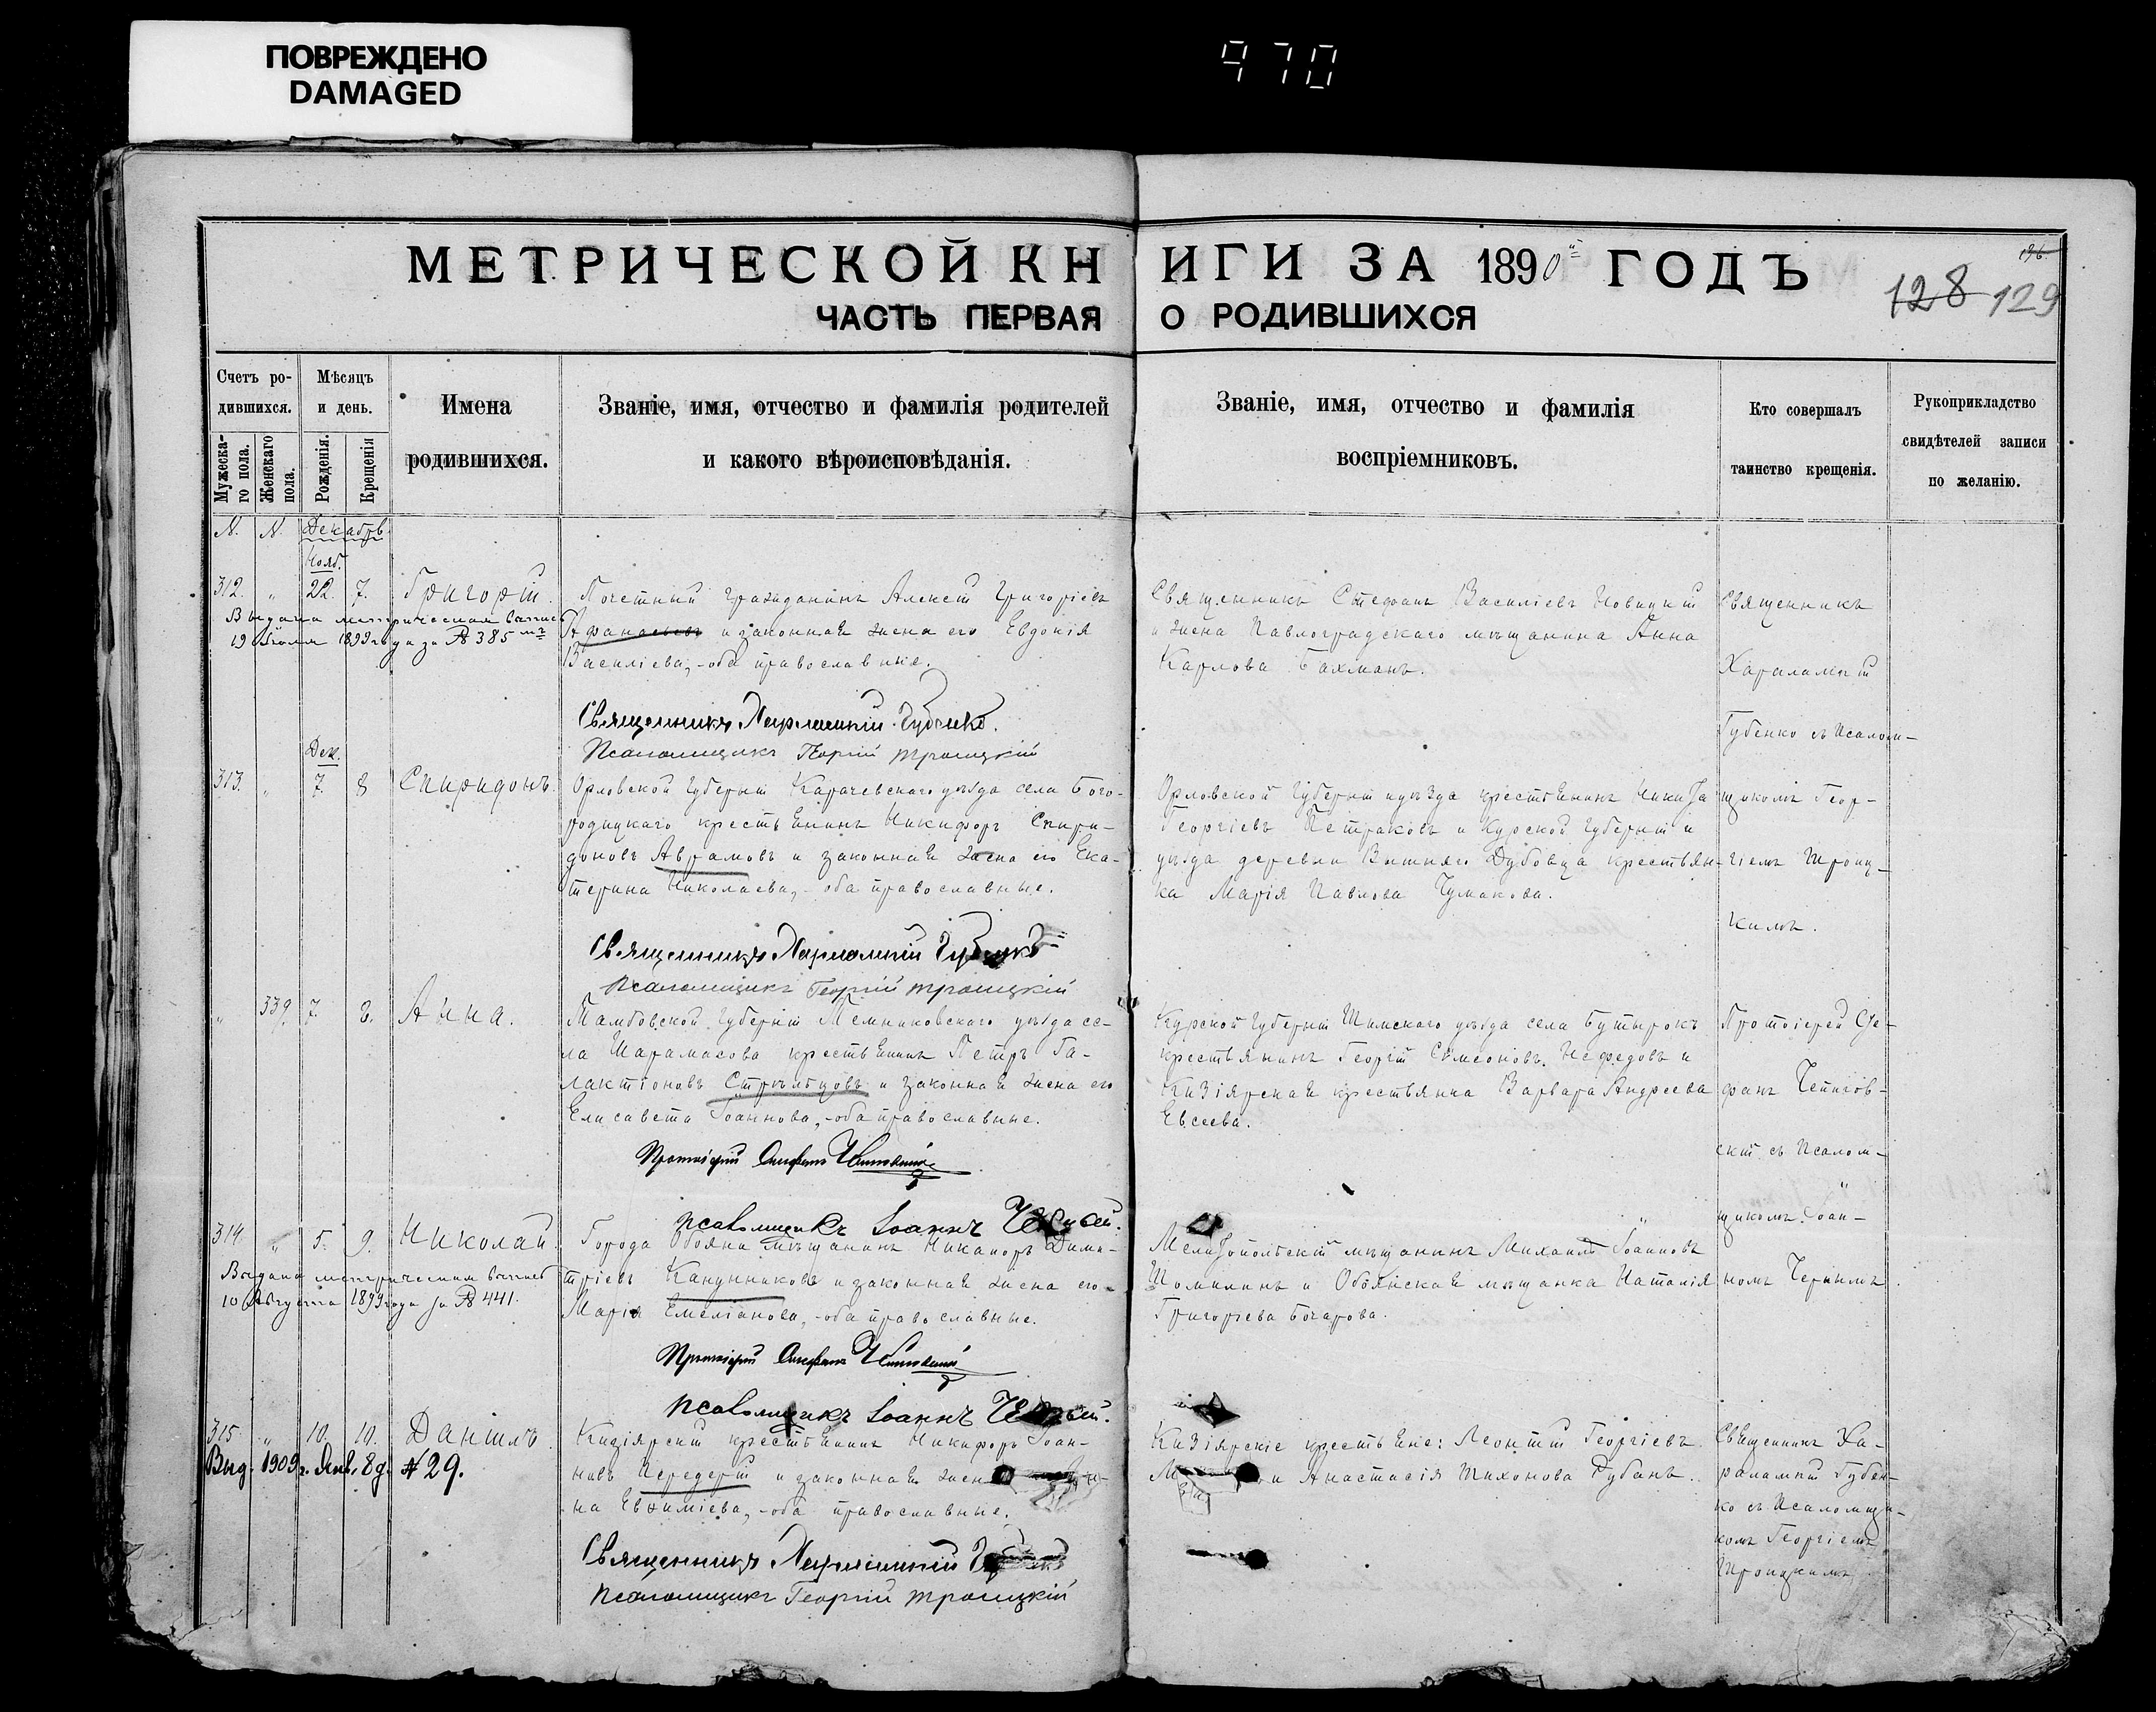 ПОВРЕЖДЕНО
DAMAGED
970
МЕТРИЧЕСКОЙ КНИГИ ЗА 1890й ГОДЪ
196.
128 129
ЧАСТЬ ПЕРВАЯ О РОДИВШИХСЯ
Счетъ ро-
дившихся.
Мужеска-
го пола.
Женскаго
пола.
Мѣсяцъ
и день.
Рожденія.
Крещенія
Имена
родившихся.
Званіе, имя, отчество и фамилія родителей
и какого вѣроисповѣданія.
Званіе, имя, отчество и фамилія
воспріемниковъ.
Кто совершалъ
таинство крещенія.
Рукоприкладство
свидѣтелей записи
по желанію.
N. N. Декабрь
Нояб.
312. " 22. 7. Григорій.
Выдана метрическая выпись
19 1899 года за № 385
Почетный гражданинъ Алексій Григоріевъ
Афанасьевъ и законная жена его Евдокія
Василіева, - оба православные.
Священникъ Харлампій Губенко.
Псаломщикъ Георгій Троицкій
Священникъ Стефанъ Василіевъ Новицкій
и жена Павлоградскаго мѣщанина Анна
Карлова Бахманъ.
Священникъ
Харалампій
Губенко съ Псалом-
щикомъ Геор-
гіемъ Троиц-
кимъ.
Дек.
313. " 7. 8 Спиридонъ.
Орловской Губерніи Карачевскаго уѣзда села Бого-
родицкаго крестьянинъ Никифоръ Спири-
доновъ Аврамовъ и законная жена его Ека-
терина Николаева, - оба православные.
Священникъ Харлампій Губенко
Псаломщикъ Георгій Троицкій
Орловской Губерніи и уѣзда крестьянинъ Никита
Георгіевъ Петраковъ и Курской Губерніи и
уѣзда деревни Вышняго Дубовца крестьян-
ка Марія Павлова Чумакова.
" 339. 7. 8. Анна.
Тамбовской Губерніи Темниковскаго уѣзда се-
ла Шарамасова крестьянинъ Петръ Га-
лактіоновъ Стрѣльцовъ и законная жена его
Елисавета Іоаннова, - оба православные.
Протоіерей Стефанъ
Псаломщикъ Іоаннъ
Курской Губерніи Тимскаго уѣзда села Бутырокъ
крестьянинъ Георгій Симеоновъ Нефедовъ и
Кизіярская крестьянка Варвара Андреева
Евсеева.
Протоіерей Сте-
фанъ
скій съ Псалом-
щикомъ Іоан-
номъ Чернымъ
314. " 5. 9. Николай
Выдана метрическая выпись
10 Августа 1899 года за № 441.
Города Обояни мѣщанинъ Никаноръ Дими-
тріевъ Канунниковъ и законная жена его
Марія Емеліанова, - оба православные.
Протоіерей Стефанъ
Псаломщикъ Іоаннъ
Мелитопольскій мѣщанинъ Михаилъ Іоанновъ
Шомилинъ и Обоянская мѣщанка Наталія
Григорьева Бочарова.
315 " 10. 10. Даніилъ.
Выд. 1909 г. Янв. 8 д. № 29.
Кизіярскій крестьянинъ Никифоръ Іоан-
новъ Передерій и законная жена
на Евѳиміева, - оба православные.
Священникъ Харлампій
Псаломщикъ Георгій Троицкій
Кизіярскіе крестьяне: Леонтій Георгіевъ
и Анастасія Тихонова Дубина.
Священникъ Ха-
ралампій Губен-
ко съ Псаломщи-
комъ Георгіемъ
Троицкимъ